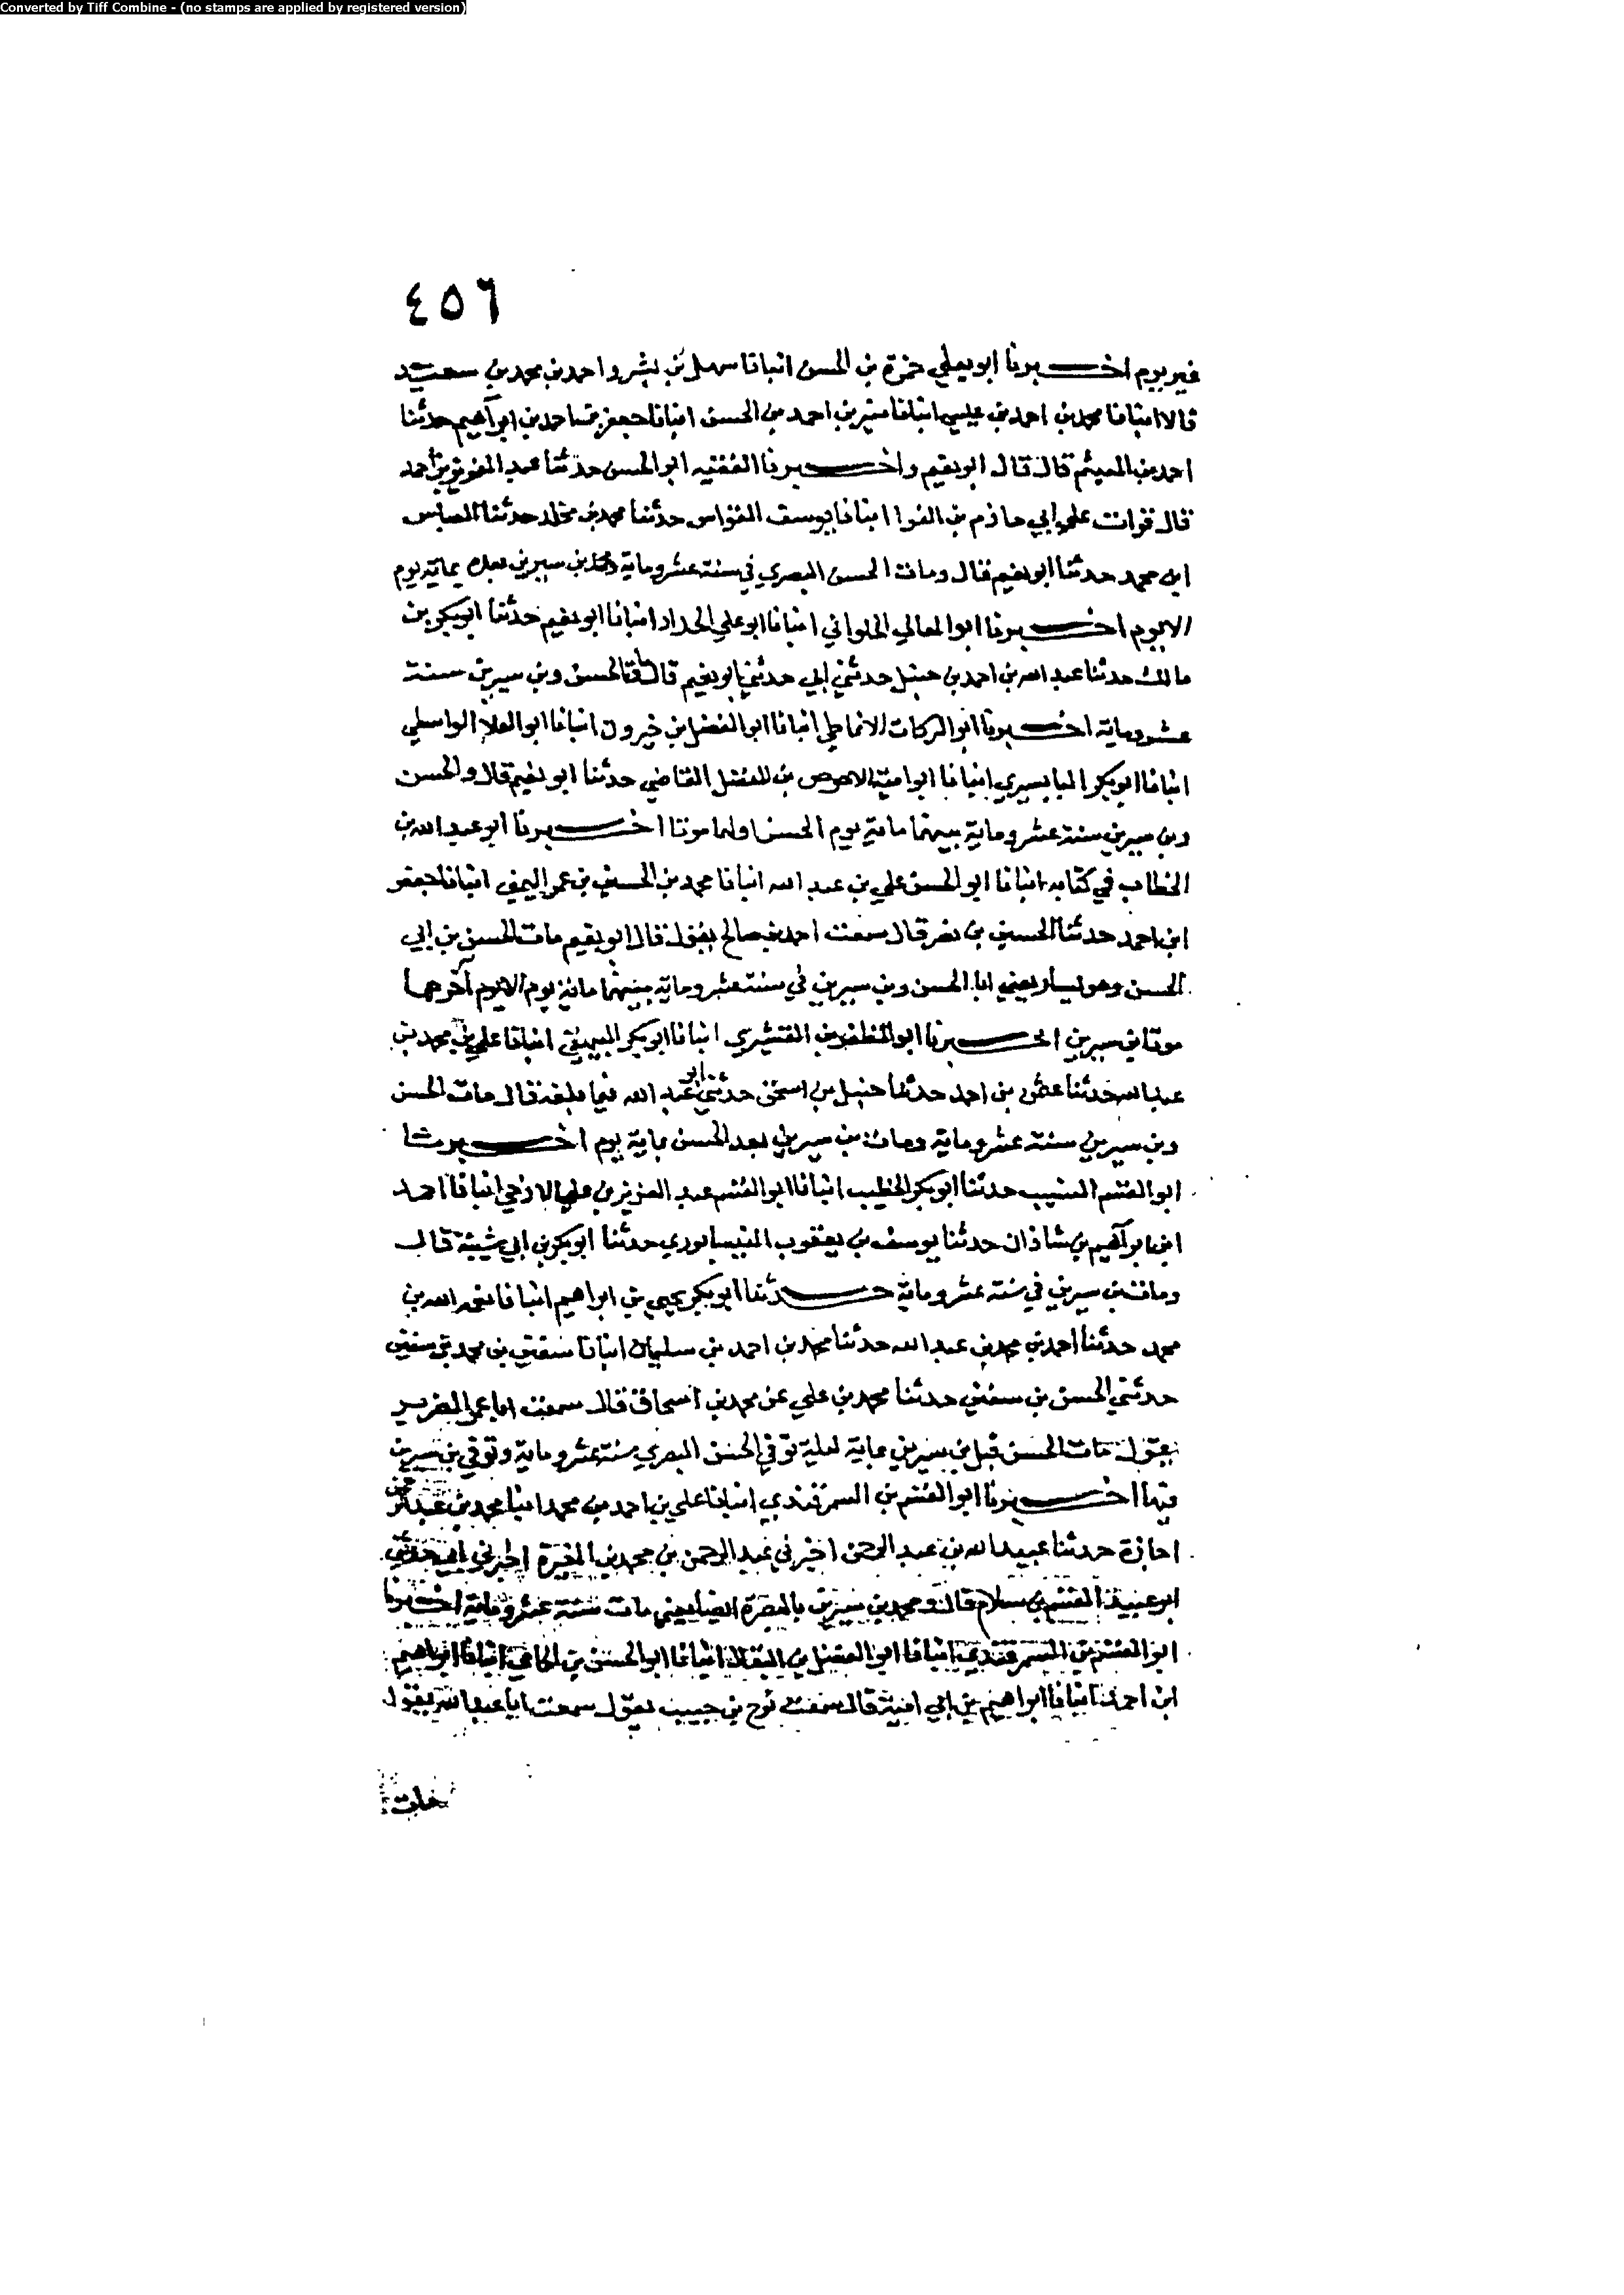 Converted by Tiff Combine - (no stamps are applied by registered version)
٤٥٦
غير يوم اخبرنا ابو يعلي حمزة بن الحسن انبانا سهل بن بشر واحمد بن محمد بن سعيد
قالا انبانا محمد بن احمد بن عيسي انبانا منير بن احمد بن الحسن انبانا جعفر بن احمد بن ابراهيم حدثنا
احمد بن الهيثم قال قال ابو نعيم واخبرنا الفقيه ابو الحسن حدثنا عبد العزيز بن احمد
قال قرات علي ابي حازم بن الفرا انبانا يوسف القواس حدثنا محمد بن مخلد حدثنا العباس
ابن محمد حدثنا ابو نعيم قال ومات الحسن البصري في سنة عشر وماية ومحمد بن سيرين بعده بماية يوم
الا يوم اخبرنا ابو المعالي الحلواني انبانا ابو علي الحداد انبانا ابو نعيم حدثنا ابو بكر بن
مالك حدثنا عبد الله بن احمد بن حنبل حدثني ابي حدثني ابو نعيم قال مات الحسن وبن سيرين سنة
عشر وماية اخبرنا ابو البركات الانماطي انبانا ابو الفضل بن خيرون انبانا ابو العلا الواسطي
انبانا ابو بكر البابسيري انبانا ابو امية الاحوص بن المفضل القاضي حدثنا ابو نعيم قال والحسن
وبن سيرين سنة عشر وماية بينهما ماية يوم الحسن اولهما موتا اخبرنا ابو عبد الله بن
الخطاب في كتابه انبانا ابو الحسن علي بن عبد الله انبانا محمد بن الحسين بن عمر اليمني انبانا جعفر
ابن احمد حدثنا الحسين بن نصر قال سمعت احمد بن صالح يقول قال ابو نعيم مات الحسن بن ابي
الحسن وهو يسار يعني ابا الحسن وبن سيرين في سنة عشر وماية بينهما ماية يوم الا يوم آخرهما
موتا بن سيرين اخبرنا ابو المظفر بن القشيري انبانا ابو بكر البيهقي انبانا علي بن محمد بن
عبد الله حدثنا عثمن بن احمد حدثنا حنبل بن اسحق حدثني ابو عبد الله فيما بلغه قال مات الحسن
وبن سيرين سنة عشر وماية ومات بن سيرين بعد الحسن بماية يوم اخبرنا
ابو القسم النسيب حدثنا ابو بكر الخطيب انبانا ابو القسم عبد العزيز بن علي الازجي انبانا احمد
ابن ابراهيم بن شاذان حدثنا يوسف بن يعقوب النيسابوري حدثنا ابو بكر بن ابي شيبة قال
ومات بن سيرين في سنة عشر وماية حدثنا ابو بكر يحيي بن ابراهيم انبانا نعمة الله بن
محمد حدثنا احمد بن محمد بن عبد الله حدثنا محمد بن احمد بن سليمان انبانا سفين بن محمد بن سفين
حدثني الحسن بن سفين حدثنا محمد بن علي عن محمد بن اسحاق قال سمعت ابا عمر الضرير
يقول مات الحسن قبل بن سيرين بماية ليلة توفي الحسن البصري سنة عشر وماية وتوفي بن سيرين
فيها اخبرنا ابو القسم بن السمرقندي انبانا علي بن احمد بن محمد انبا محمد بن عبد الرحمن
اجازة حدثنا عبيد الله بن عبد الرحمن اخبرني عبد الرحمن بن محمد بن المغيرة اخبرني ابي حدثني
ابو عبيد القسم بن سلام قال ومحمد بن سيرين بالبصرة ايضا يعني مات سنة عشر وماية اخبرنا
ابو القسم بن السمرقندي انبانا ابو الفضل بن البقال انبانا ابو الحسن بن الحمامي انبانا ابراهيم
ابن احمد انبانا ابراهيم بن ابي امية قال سمعت نوح بن حبيب يقول سمعت ابا عبد الله يقول
مات